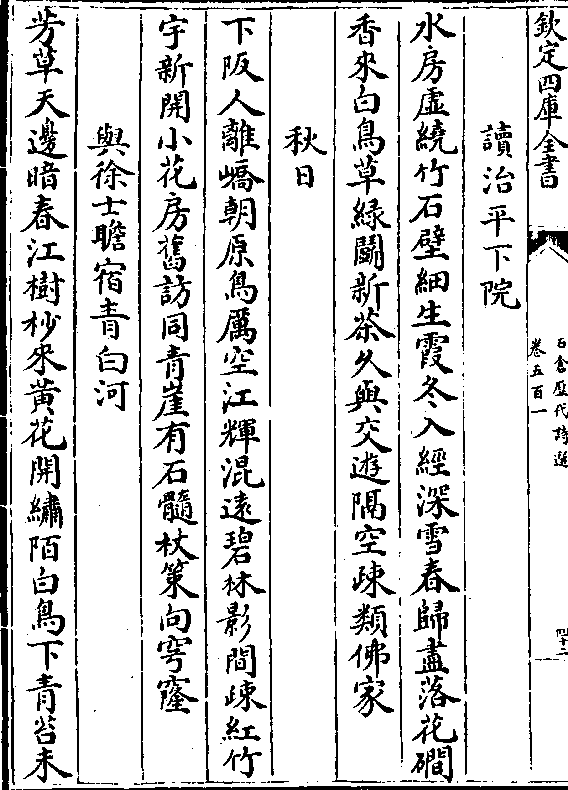 欽定四庫全書
石倉歴代詩選
卷五百一
四十二
讀治平下院
水房虛繞竹石壁細生霞冬入經深雪春歸盡落花磵
香來白鳥草緑鬬新茶久與交遊隔空疎類佛家
秋日
下阪人離嶠朝原鳥厲空江輝混遠碧林影間疎紅竹
宇新開小花房舊訪同青崖有石髓杖策向穹窿
與徐士瞻宿青白河
芳草天邊暗春江樹杪來黃花開繡陌白鳥下青苔未